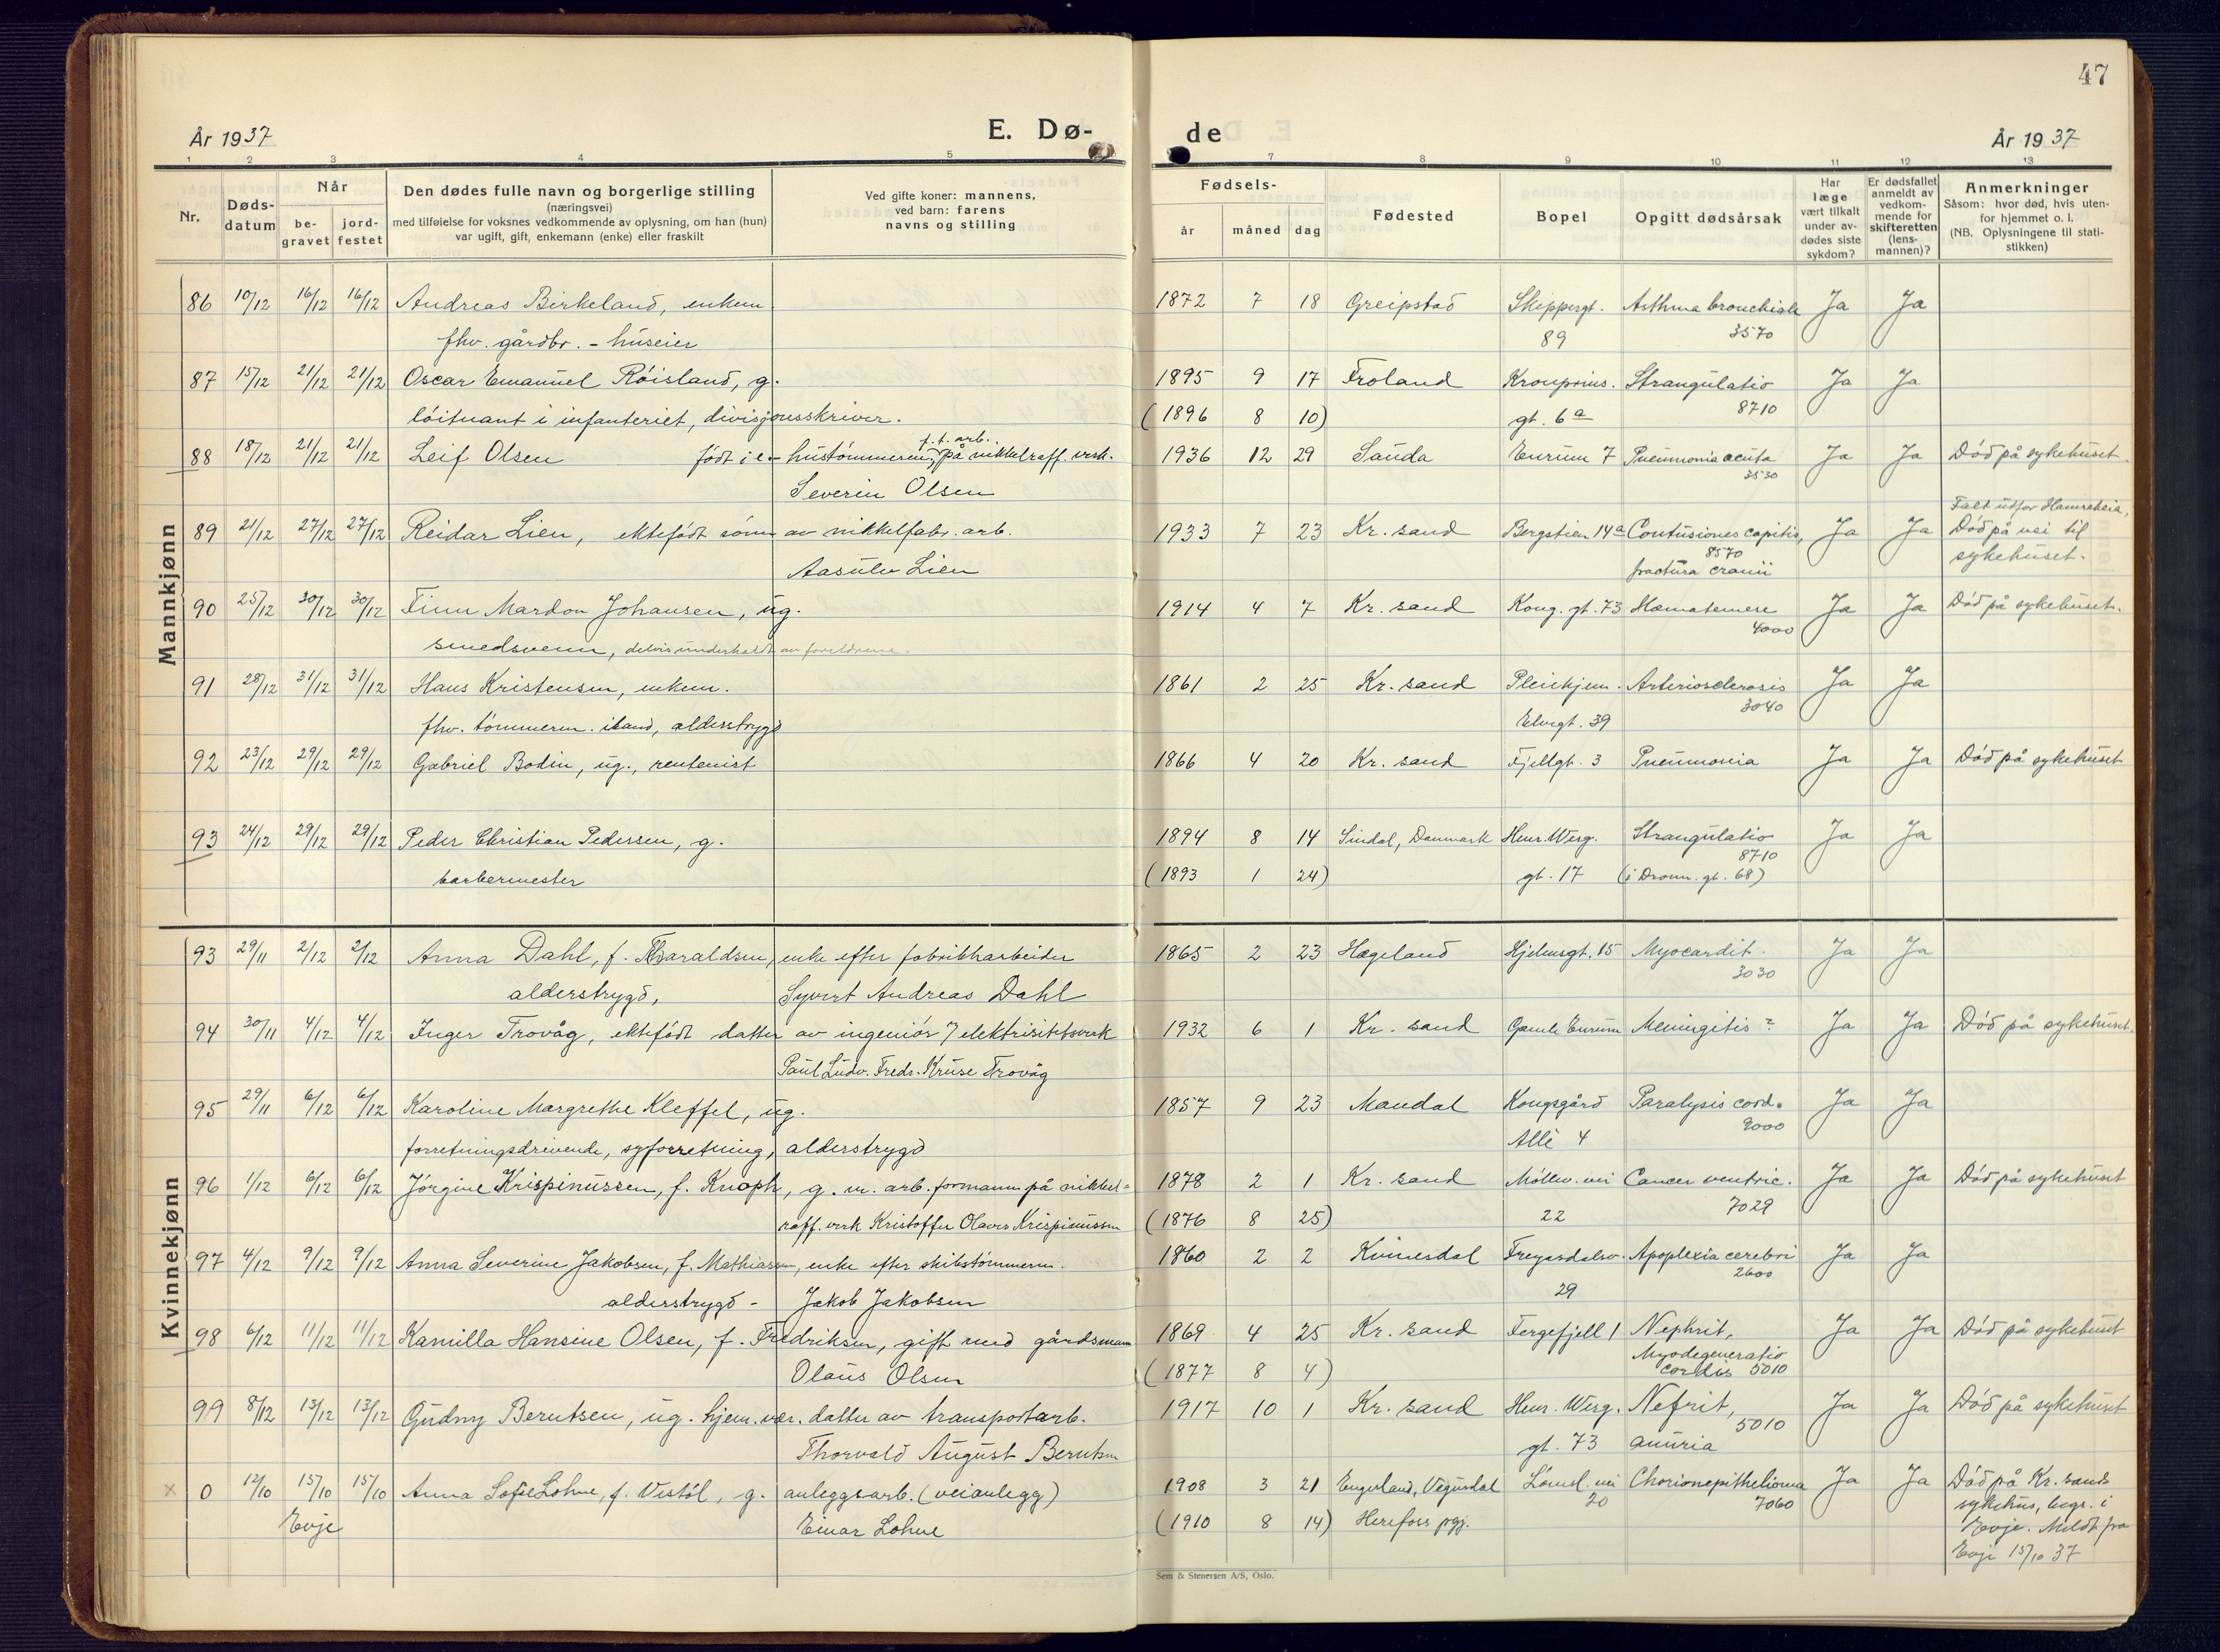 47
År 1937
E. Dø-
de
År 1937
1 2 3 4 5 7 8 9 10 11 12 13
Nr.
Døds-
datum
Når
be-
gravet
jord-
festet
Den dødes fulle navn og borgerlige stilling
(næringsvei)
med tilføielse for voksnes vedkommende av oplysning, om han (hun)
var ugift, gift, enkemann (enke) eller fraskilt
Ved gifte koner: mannens,
ved barn: farens
navns og stilling
Fødsels-
år
måned
dag
Fødested
Bopel
Opgitt dødsårsak
Har
læge
vært tilkalt
under av-
dødes siste
sykdom?
Er dødsfallet
anmeldt av
vedkom-
mende for
skifteretten
(lens-
mannen)?
Anmerkninger
Såsom: hvor død, hvis uten-
for hjemmet o. l.
(NB. Oplysningene til stati-
stikken)
Mannkjønn
86 10/12 16/12 16/12 Andreas Birkeland, enkem. 1872 7 18 Greipstad Skippergt. Asthma bronchiale Ja Ja
fhv. gårdbr. - huseier 89 3570
87 15/12 21/12 21/12 Oscar Emanuel Røisland, g. 1895 9 17 Froland Kronprins. Strangulatio Ja Ja
løitnant i infanteriet, divisjonsskriver. (1896 8 10) gt. 6a 8710
f.t. arb.
88 18/12 21/12 21/12 Leif Olsen født i e.- hustømmeren, på nikkelraff. verk. 1936 12 29 Sauda Eurum 7 Pneumonia acuta Ja Ja Død på sykehuset.
Severin Olsen 3530
Falt utfor Hamreheia,
89 21/12 27/12 27/12 Reidar Lien, ektefødt sønn av nikkelfabr. arb. 1933 7 23 Kr. sand Bergstien 14a Contusiones capitis, Ja Ja Død på vei til
Aasulv Lien 8570 sykehuset.
fractura cranii
90 25/12 30/12 30/12 Finn Mardon Johansen, ug. 1914 4 7 Kr. sand Kong. gt. 73 Hæmatemese Ja Ja Død på sykehuset.
smedsvenn, delvis underholdt av foreldrene. 4000
91 28/12 31/12 31/12 Hans Kristensen, enkem. 1861 2 25 Kr. sand Pleiehjem. Arteriosclerosis Ja Ja
fhv. tømmerm. istand, alderstrygd Elvegt. 39 3040
92 23/12 29/12 29/12 Gabriel Bodin, ug., rentenist 1866 4 20 Kr. sand Fjellgt. 3 Pneumonia Ja Ja Død på sykehuset
93 24/12 29/12 29/12 Peder Christian Pedersen, g. 1894 8 14 Sindal, Danmark Henr. Werg. Strangulatio Ja Ja
8710
barbermester (1893 1 24) gt. 17 (i Dronn. gt. 68)
Kvinnekjønn
93 29/11 2/12 2/12 Anna Dahl, f. Tharaldsen, enke efter fabrikkarbeider 1865 2 23 Hægeland Hjelmsgt. 15 Myocardit. Ja Ja
alderstrygd, Syvert Andreas Dahl 3030
94 30/11 4/12 4/12 Inger Trovåg, ektefødt datter av ingeniør v/ elektrisitetsverk 1932 6 1 Kr. sand Gamle Eurum Meningitis? Ja Ja Død på sykehuset.
Paul Ludv. Fredr. Kruse Trovåg
95 29/11 6/12 6/12 Karoline Margrethe Kleffel, ug. 1857 9 23 Mandal Kongsgård Paralysis cord. Ja Ja
forretningsdrivende, syforretning, alderstrygd Allé 4 9000
96 1/12 6/12 6/12 Jørgine Krispinussen, f. Knoph, g. m. arb. formann på nikkel- 1878 2 1 Kr. sand Møllev. vei Cancer ventric. Ja Ja Død på sykehuset
raff. verk Kristoffer Olaves Krispinussen (1876 8 25) 22 7029
97 4/12 9/12 9/12 Anna Severine Jakobsen, f. Mathiassen, enke efter skibstømmerm. 1860 2 2 Kvinesdal Freyasdalsv. Apoplexia cerebri Ja Ja
alderstrygd - Jakob Jakobsen 29 2600
98 6/12 11/12 11/12 Kamilla Hansine Olsen, f. Fredriksen, gift med gårdsmann 1869 4 25 Kr. sand Fergefjell 1 Nephrit, Ja Ja Død på sykehuset
Olaus Olsen (1877 8 4) Myodegeneratio
cordis 5010
99 8/12 13/12 13/12 Gudny Berntsen, ug. hjem.vær. datter av transportarb. 1917 10 1 Kr. sand Henr. Werg. Nefrit, Ja Ja Død på sykehuset
Thorvald August Berntsen gt. 73 anuria 5010
x 0 12/10 15/10 15/10 Anna Sofie Lohne, f. Vestøl, g. anleggsarb. (veianlegg) 1908 3 21 Engesland, Vegusdal Lømsl. vei Chorionepithelioma Ja Ja Død på Kr. sands
Evje Einar Lohne (1910 8 14) Herefoss pgj. 20 7060 sykehus, begr. i
Evje. Meldt fra
Evje 15/10 37
Sem & Stenersen A/S, Oslo.